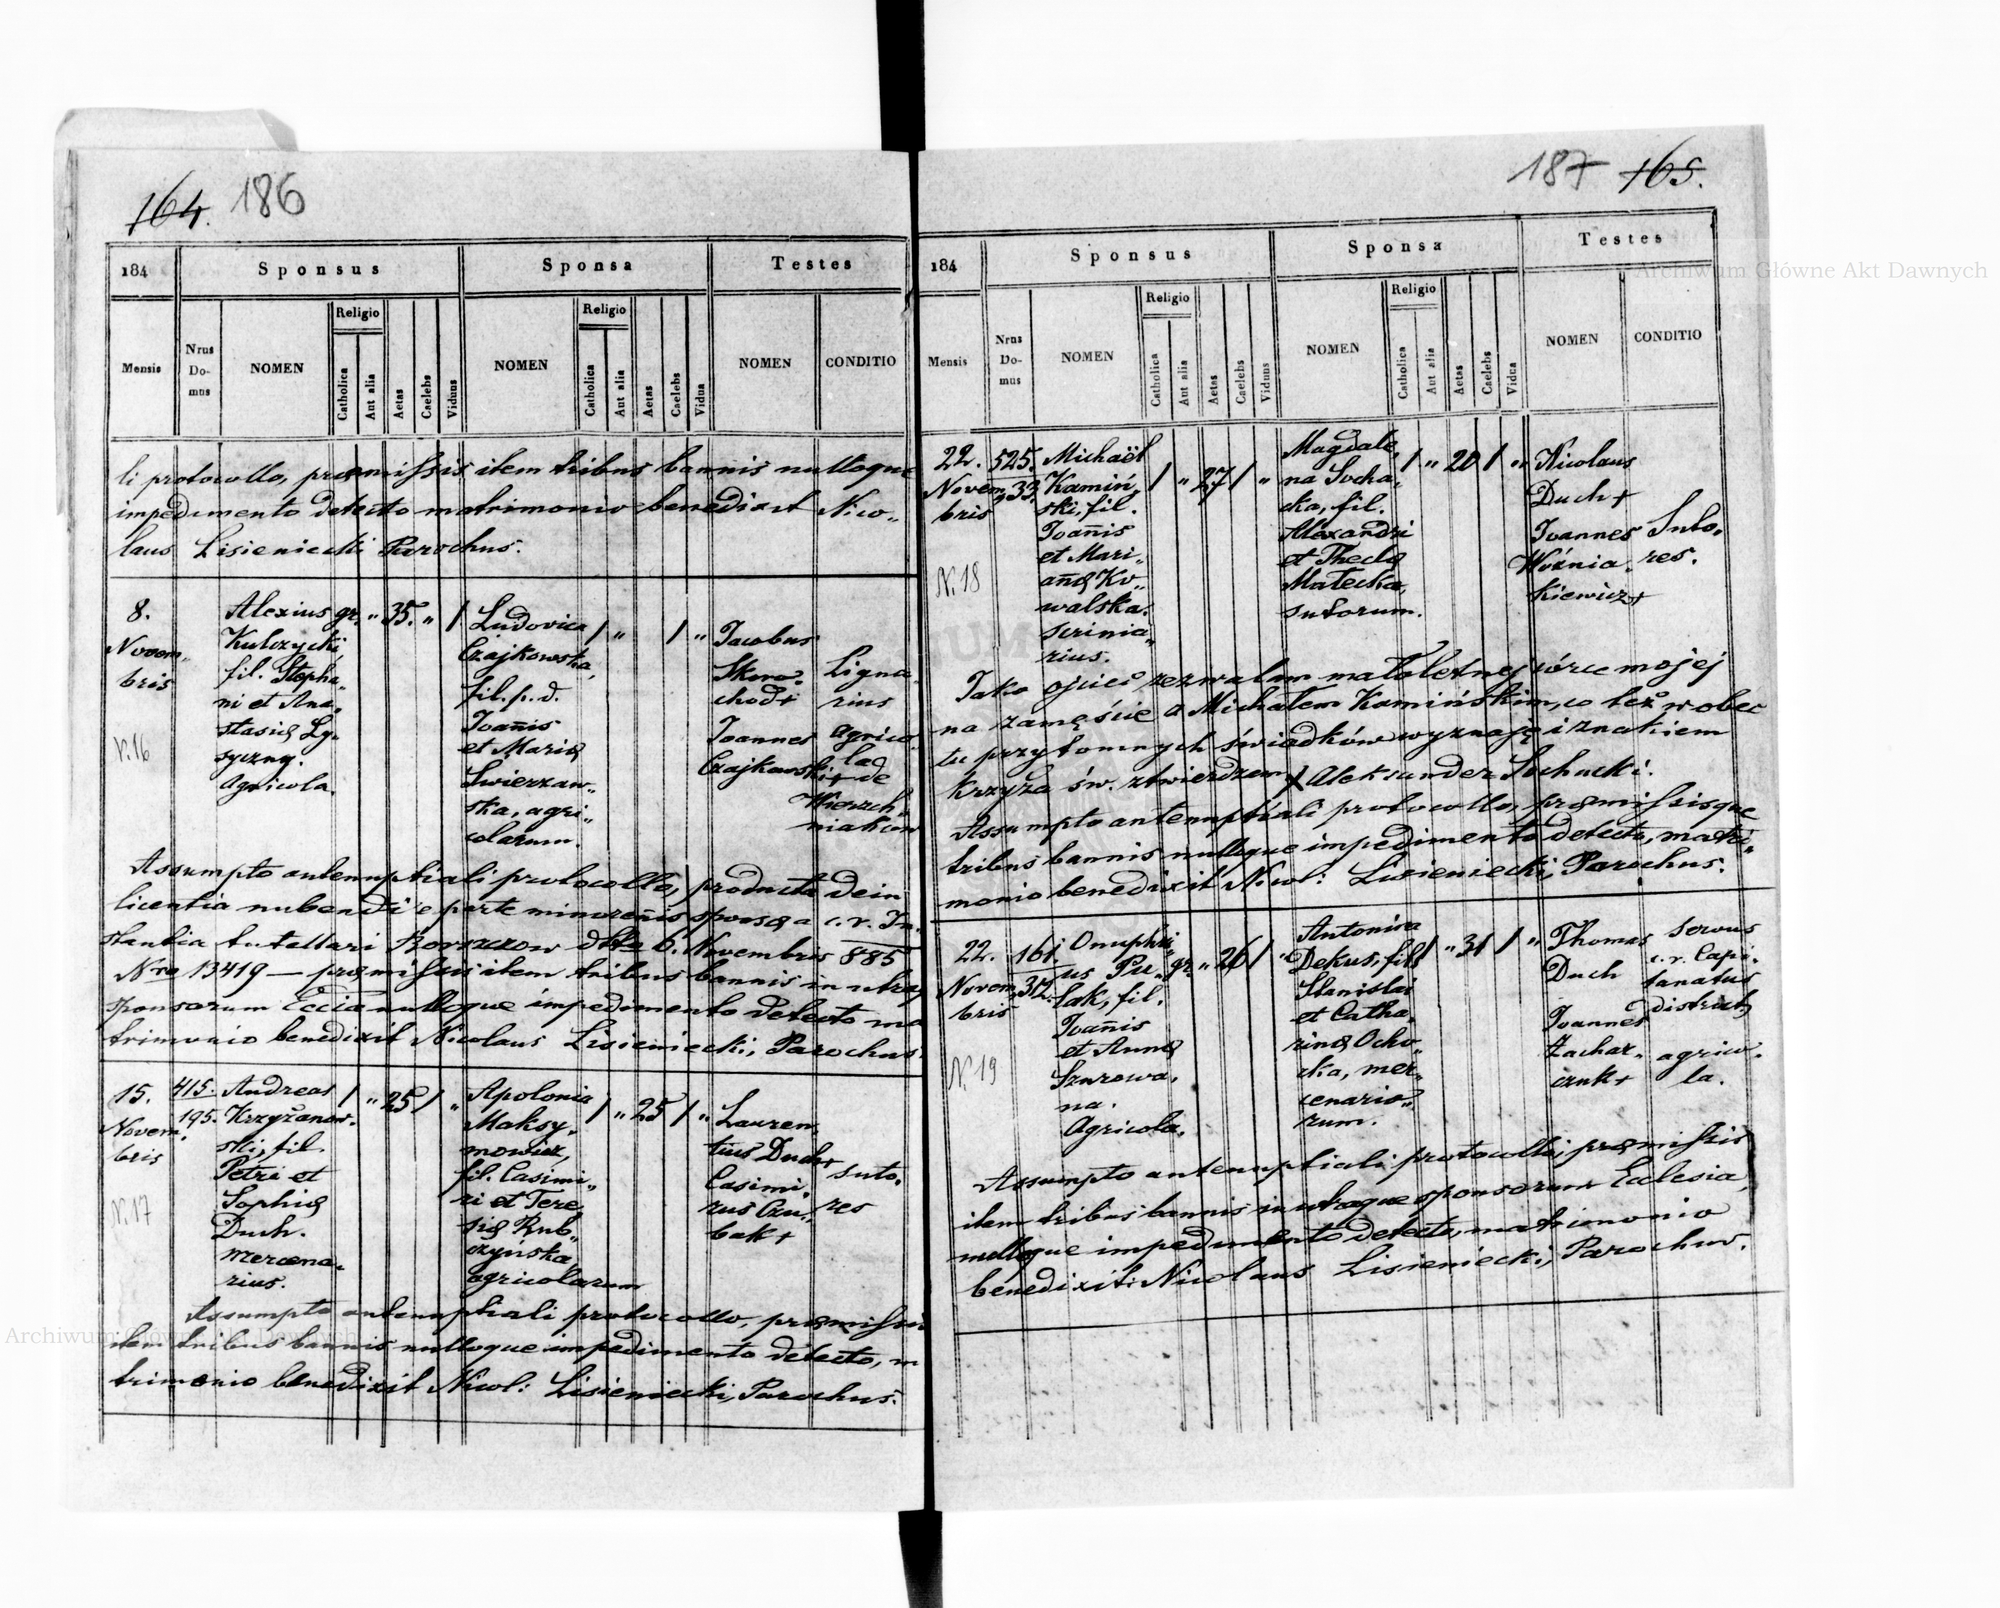 164. 186
184
Sponsus
Sponsa
Testes
Mensis
Nrus Do- mus
NOMEN
Religio
Catholica
Aut alia
Aetas
Caelebs
Viduus
NOMEN
Religio
Catholica
Aut alia
Aetas
Caelebs
Vidua
NOMEN
CONDITIO
li protocollo, præmissis item tribus bannis nulloque
impedimento detecto matrimonio benedixit Nico„
laus Lisieniecki Parochus.
8.
Novem„
bris
N. 16
Alexius gr. „ 35. „ /
Kulczycki
fil. Stepha„
ni et Ana„
stasiæ Ly„
syczny.
Agricola.
Ludovica / „ / „
Czajkowska,
fil. p. d.
Joañis
et Mariæ
Swierzaw„
ska, agri„
colarum.
Jacobus
Skoro„
chod+
Joannes
Czajkowski+
Ligna„
rius
agrico„
la de
Wierzch„
niakow
Assumpto antenuptiali protocollo, producta dein
licentia nubendi e parte minoreñis sponsæ a c. r. In„
stantia tutellari Borszczow dtto 6. Novembris 885
Nro 13419 — præmissis item tribus bannis in utraq
sponsorum Eccia nulloque impedimento detecto ma
trimonio benedixit Nicolaus Lisieniecki, Parochus.
15.
Novem„
bris
N. 17
415.
195.
Andreas / „ 25 / „
Krzyżanow„
ski, fil.
Petri et
Sophiæ
Duch.
Mercena„
rius.
Apolonia / „ 25 / „
Maksy„
mowicz,
fil. Casimi„
ri et Tere„
siæ Rub„
czyńska
agricolarum
Lauren„
tius Duch+
Casimi„
rus Czu„
bak+
suto„
res
Assumpto antenuptiali protocollo, præmissis
item tribus bannis nulloque impedimento detecto, m
trimonio benedixit Nicol: Lisieniecki, Parochus.
187 165.
184
Sponsus
Sponsa
Testes
Mensis
Nrus Do- mus
NOMEN
Religio
Catholica
Aut alia
Aetas
Caelebs
Viduus
NOMEN
Religio
Catholica
Aut alia
Aetas
Caelebs
Vidua
NOMEN
CONDITIO
22.
Novem„
bris
N. 18
525.
33.
Michaël / „ 27 / „
Kamiń„
ski, fil.
Joañis
et Mari„
añæ Ko„
walska.
scrinia„
rius.
Magdale„ / „ 20 / „
na Socha„
cka, fil.
Alexandri
et Theclæ
Małecka,
sutorum.
Nicolaus
Duch+
Joannes
Woźnia„
kiewicz+
Suto„
res.
Jako ojciec zezwalam małoletnej córce mojej
na zamęście z Michałem Kamińskim, co też wobec
tu przytomnych świadków wyznaję i znakiem
krzyża św. ztwierdzam X Aleksander Sochacki.
Assumpto antenuptiali protocollo, præmissisque
tribus bannis nulloque impedimento detecto, matri„
monio benedixit Nicol: Lisieniecki, Parochus.
22.
Novem„
bris
N. 19
161.
312.
Onuphri„ gr. „ 26 / „
us Pu„
lak, fil.
Joañis
et Annæ
Szurowa„
na.
Agricola.
Antonina / „ 31 / „
Dekus, fil.
Stanislai
et Catha„
rinæ Ocho„
cka, mer„
cenario„
rum.
Thomas
Duch
Joannes
Zachar„
czuk+
servus
c. r. Capi„
tanatus
district.
agrico„
la.
Assumpto antenuptiali protocollo, præmissis
item tribus bannis in utraque sponsorum Ecclesia,
nulloque impedimento detecto, matrimonio
benedixit: Nicolaus Lisieniecki, Parochus.
Archiwum Główne Akt Dawnych
Archiwum Główne Akt Dawnych